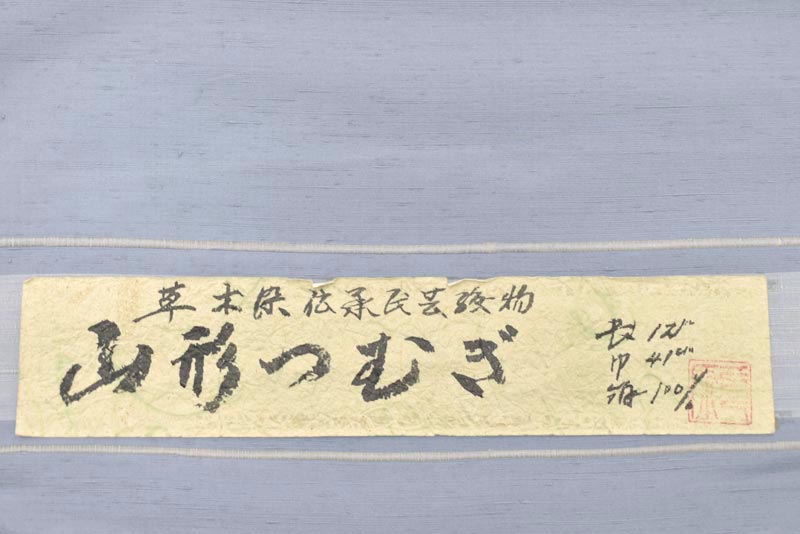 草木染伝承民芸織物
山形つむぎ
長 12m
巾 41cm
絹 100%